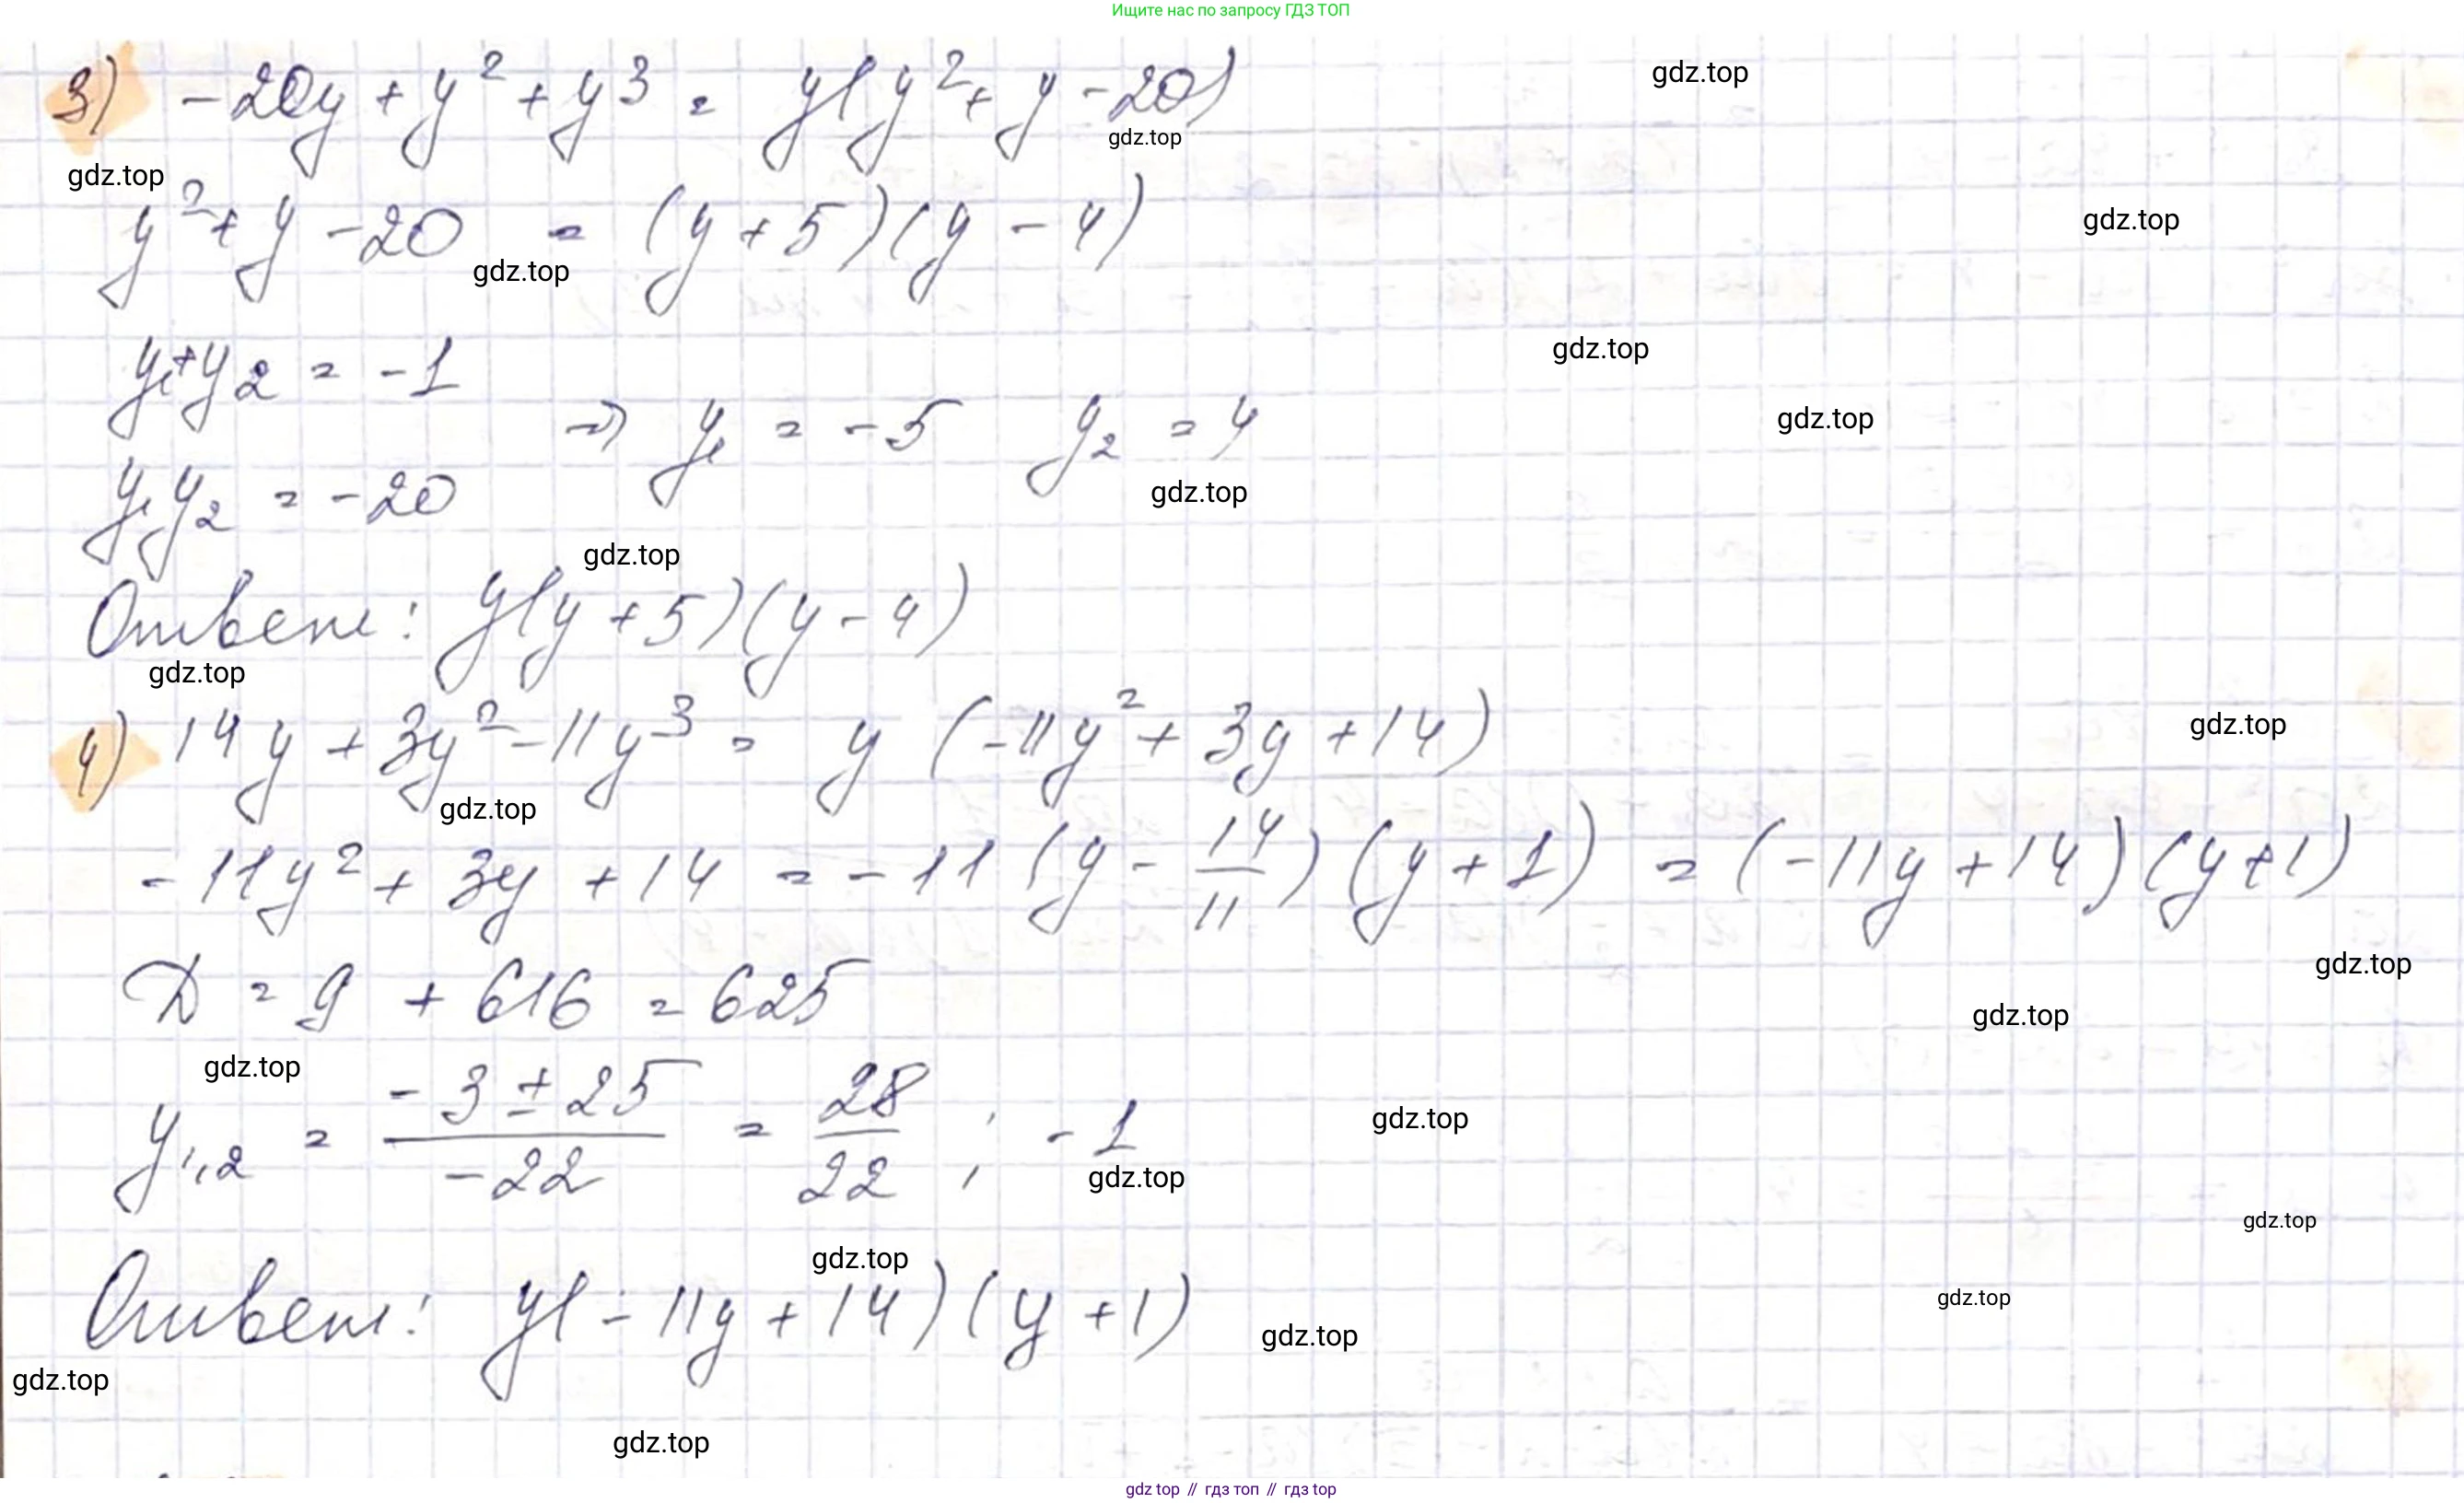 Ищите нас по запросу ГДЗ ТОП
3) -20y + y² + y³ = y(y² + y - 20)
gdz.top
gdz.top
gdz.top
y² + y - 20 = (y + 5)(y - 4)
gdz.top
gdz.top
y₁ + y₂ = -1
gdz.top
⇒ y₁ = -5 y₂ = 4
gdz.top
y₁ y₂ = -20
gdz.top
gdz.top
Ответ: y(y + 5)(y - 4)
gdz.top
4) 14y + 3y² - 11y³ = y (-11y² + 3y + 14)
gdz.top
gdz.top
-11y² + 3y + 14 = -11 (y - 14/11) (y + 1) = (-11y + 14)(y + 1)
gdz.top
D = 9 + 616 = 625
gdz.top
gdz.top
y₁,₂ = (-3 ± 25)/(-22) = 28/22 ; -1
gdz.top
gdz.top
gdz.top
gdz.top
gdz.top
Ответ: y(-11y + 14)(y + 1)
gdz.top
gdz.top
gdz.top
gdz top // гдз топ // гдз top